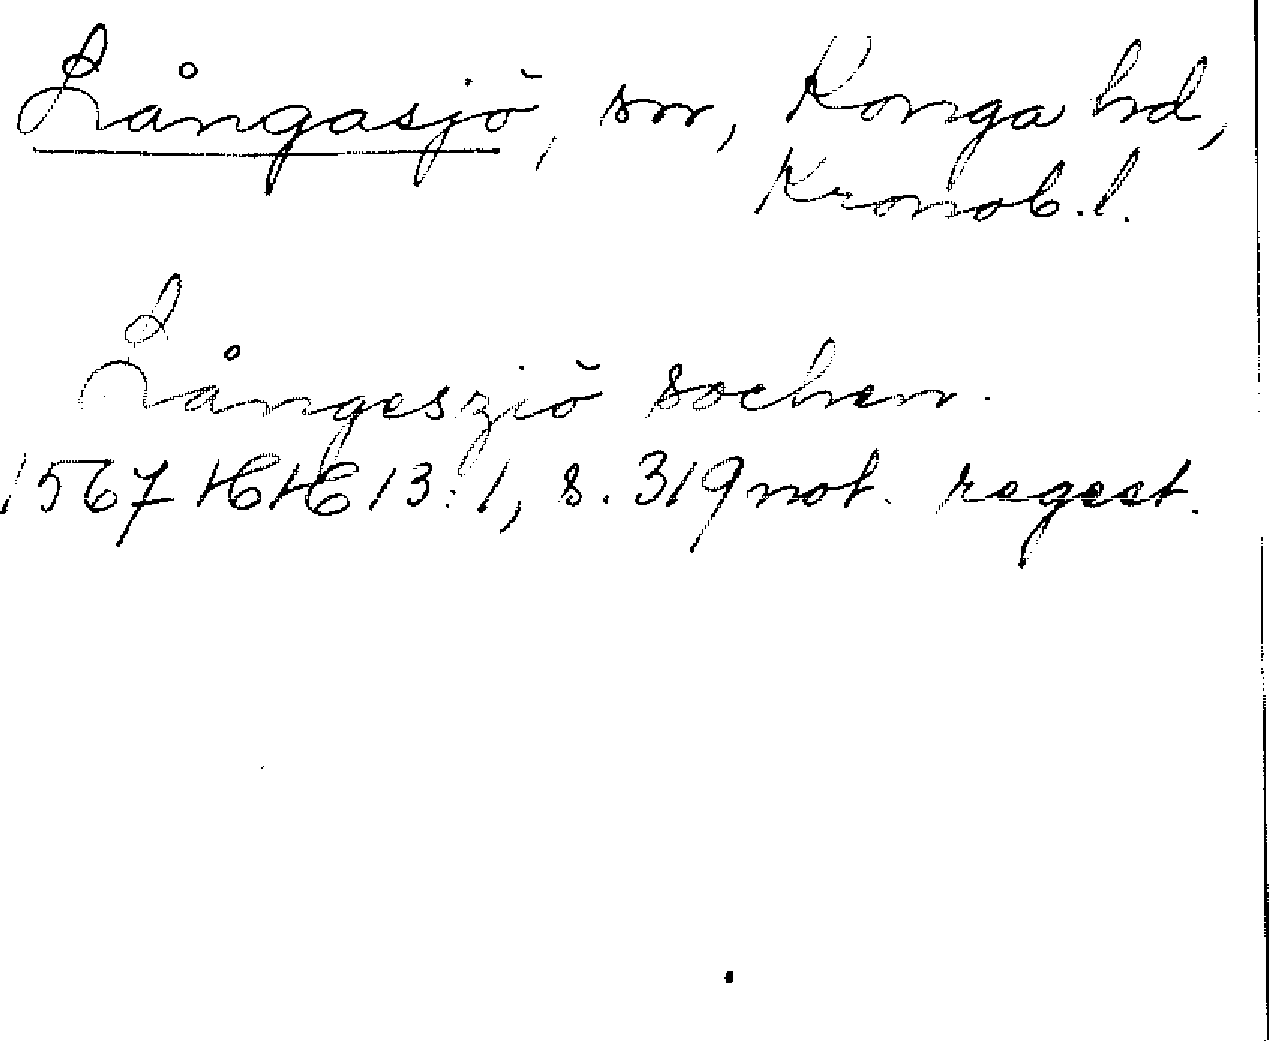 Långasjö, sn, Konga hd,
Kronob. l.
Långeszjö sochen.
1567 HH 13:1, s. 319 not. regest.